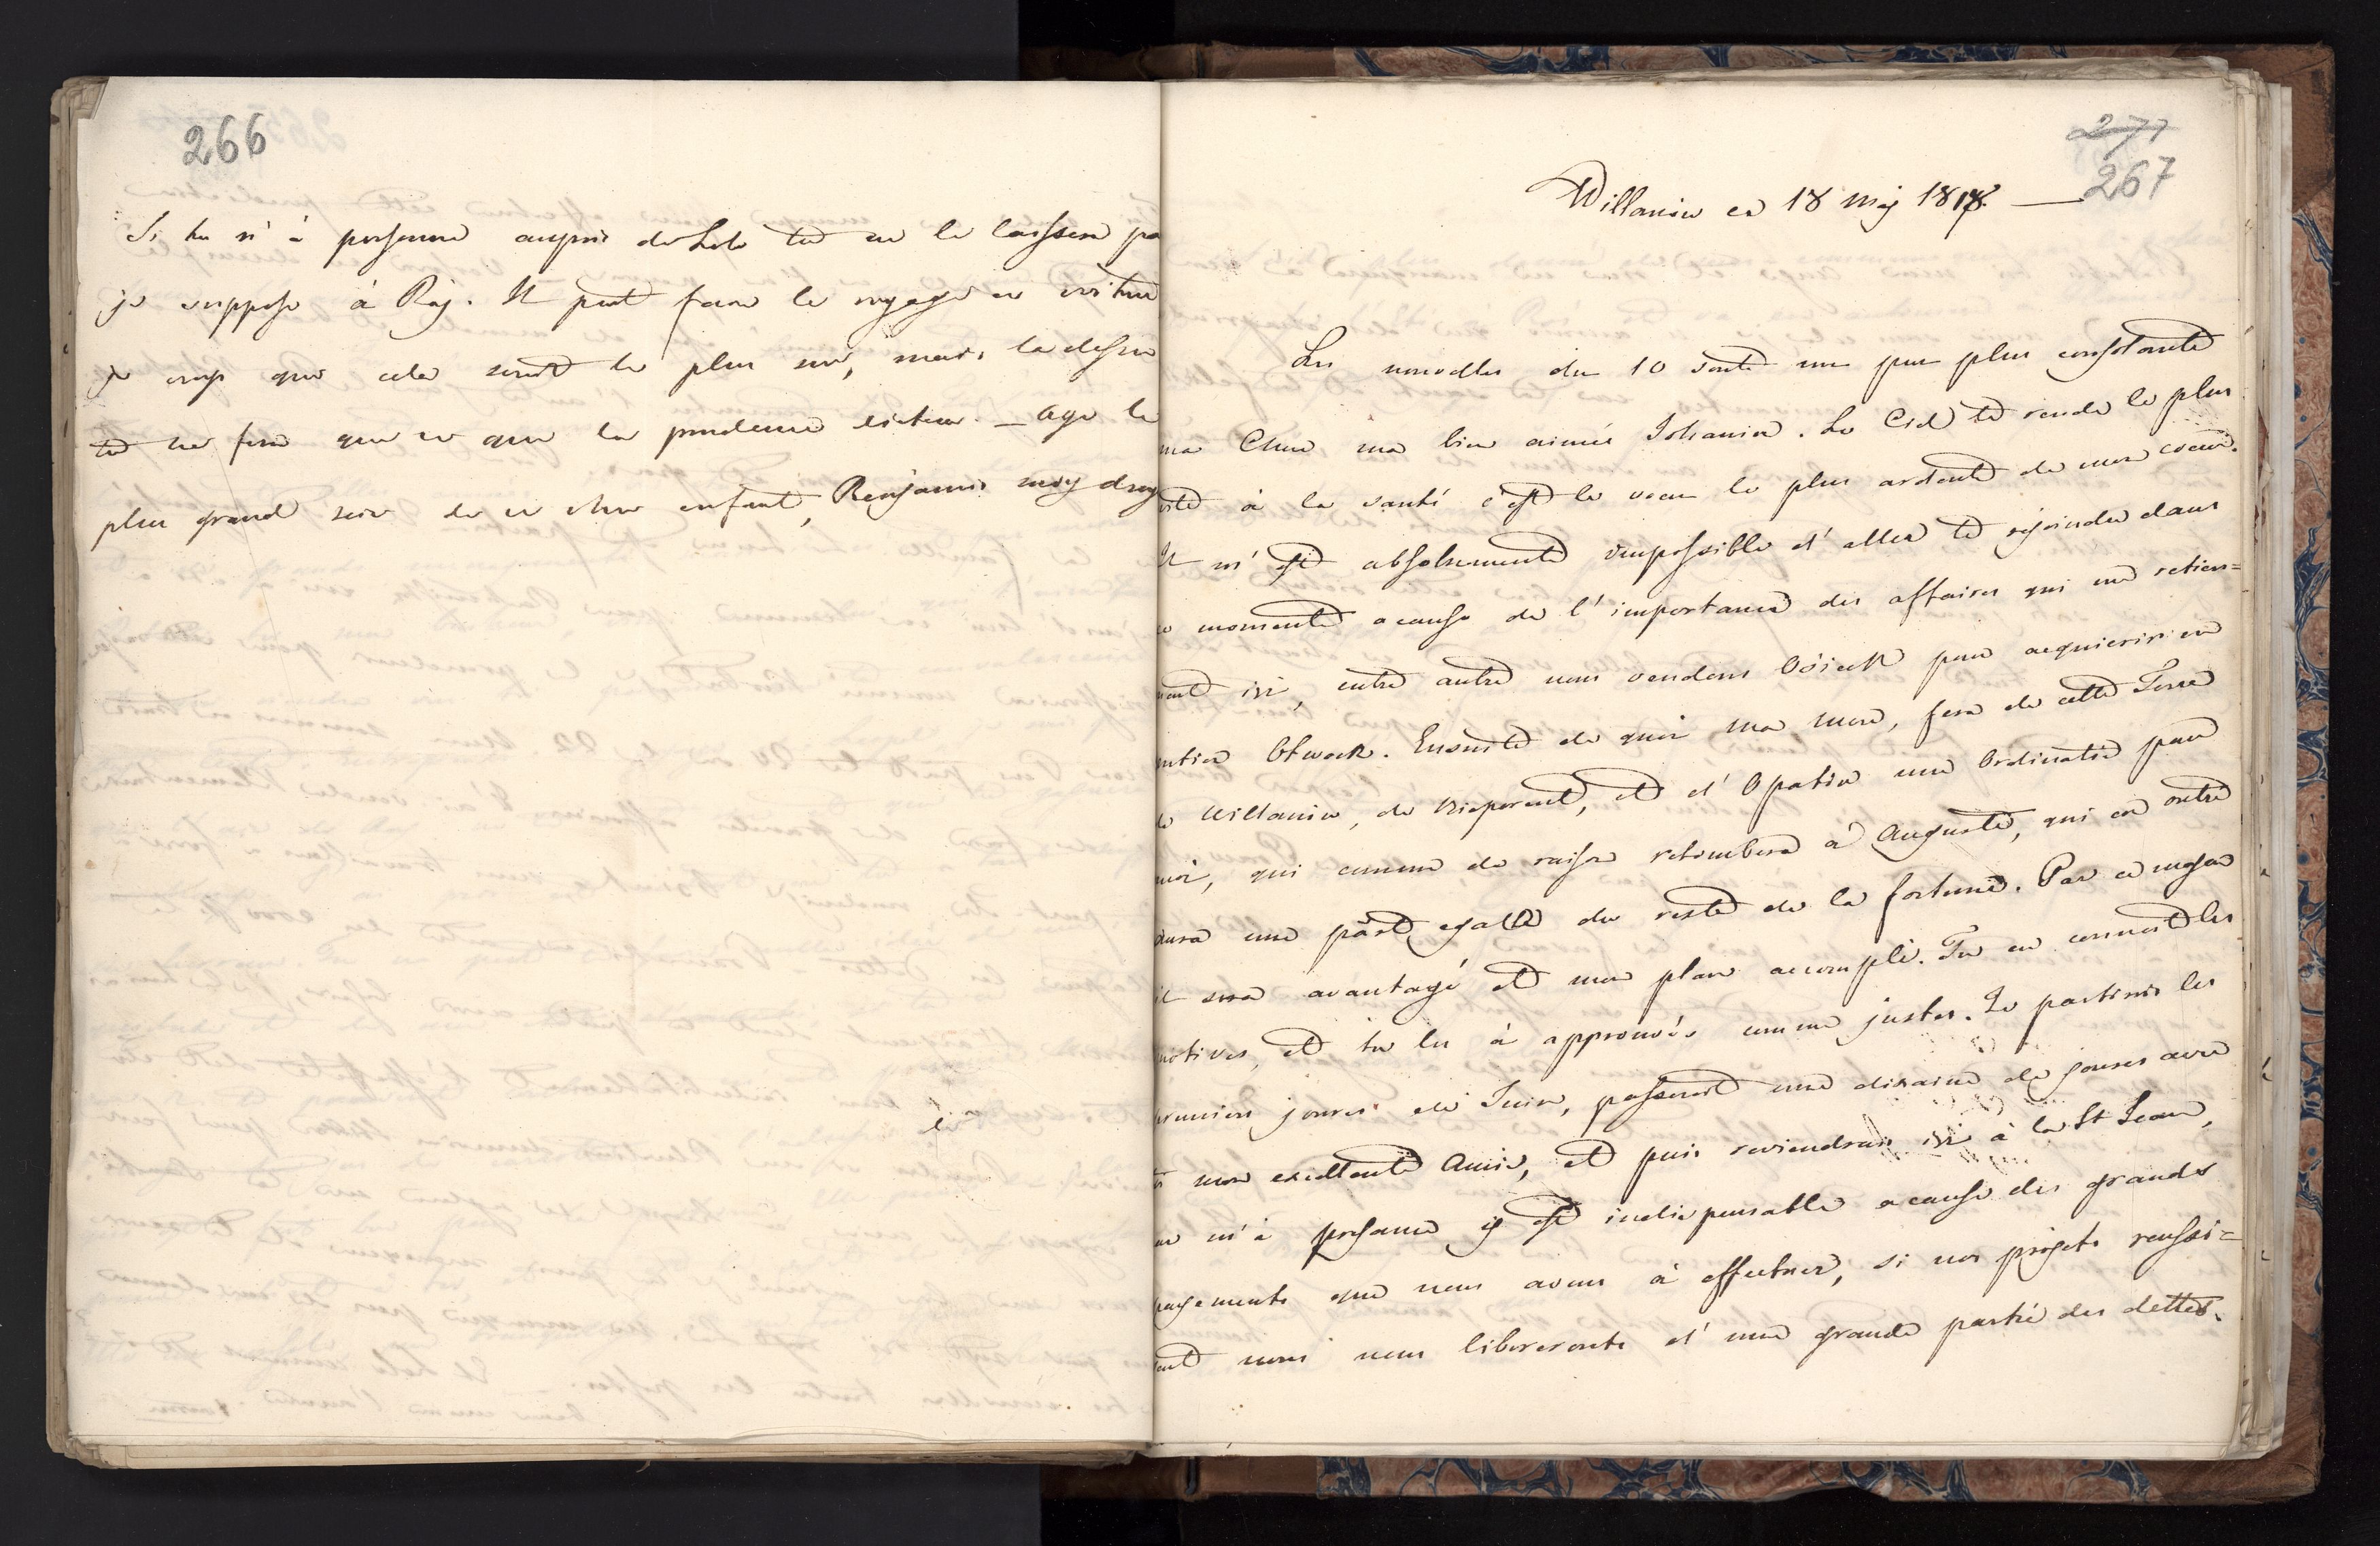 266
Si tu n'à personne auprès de Lolo tu ne le laissera pa
je suppose à Raj. Il peut faire le voyage en voiture
je croy que cela serait le plus sur, mais la dessus
tu ne fera que ce que la prudence dictera. — Aye le
plus grand soin de ce cher enfant, Benjamin moy drogi
277
267
Willanow ce 18 Maj 1818. —
Les nouvelles du 10 sont un peu plus consolante
ma Chere ma bien aimée Johania. Le Ciel te rende le plus
vite à la santé c'est le voeu le plus ardent de mon coeur.
Il m'est absolument impossible d'aller te rejoindre dans
ce moment a cause de l'importance des affaires qui me retien=
nent ici, entre autre nous vendons Osieck pour acquierir en
entier Otwock. Ensuite de quoi ma mere, fera de cette Terre
de Willanow, de Nieporent, et d'Opatow une Ordinatie pour
moi, qui comme de raison retombera à Auguste, qui en outre
aura une part egalle du reste de la fortune. Par ce moyen
il sera avantagé et mon plan accompli. Tu en connoit les
motives, et tu les à approuvés comme justes. Je partirai les
premiers joures de Juin, passerai une dizaine de joures avec
toi mon exellente Amie, et puis reviendrai ici à la St Jean,
ou m'à presance y est indispensable a cause des grands
payements que nous avons à effectuer, si nos projets reussi=
sent nous nous libererons d'une grande partie des dettes.